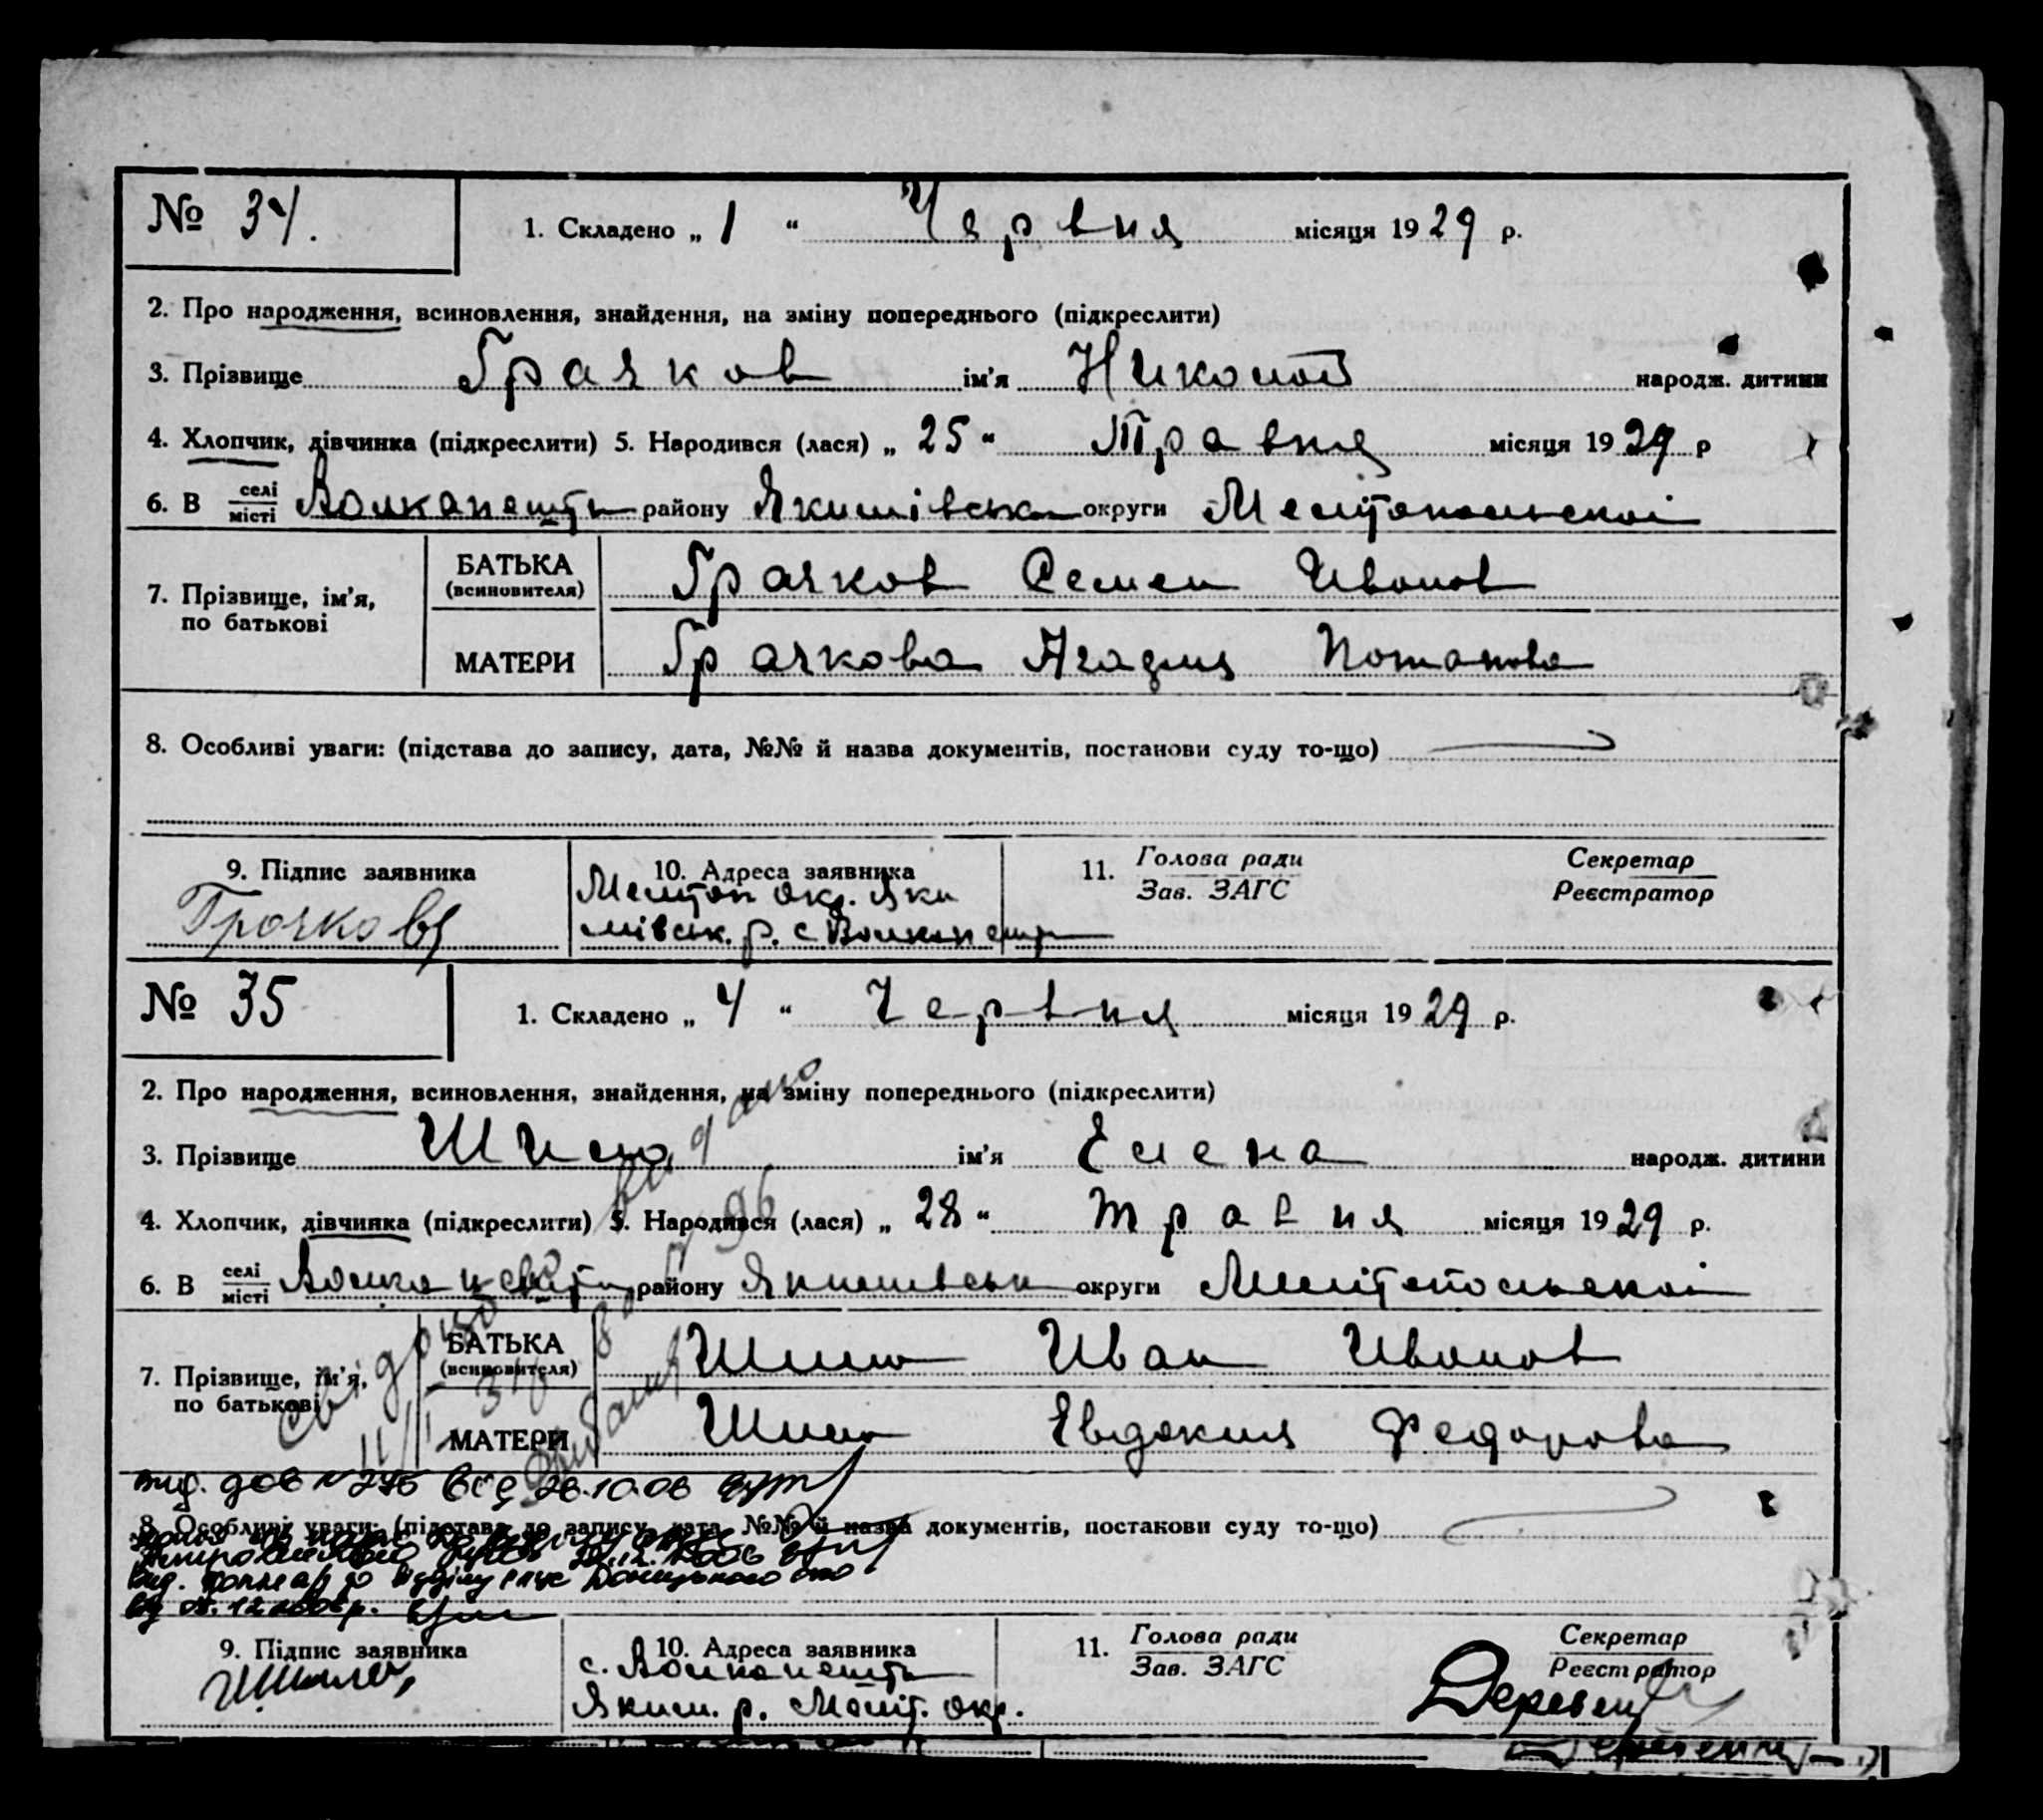 № 34. 1. Складено „ 1 “ Червня місяця 1929 р.
2. Про народження, всиновлення, знайдення, на зміну попереднього (підкреслити)
3. Прізвище Грачков ім'я Николай народж. дитини
4. Хлопчик, дівчинка (підкреслити) 5. Народився (лася) „ 25 “ Травня місяця 1929 р
6. В селі місті Волканешты району Якимівськ округи Мелітопольскоі
7. Прізвище, ім'я, по батькові
БАТЬКА (всиновителя) Грачков Семен Иванов
МАТЕРИ Грачкова Агафия Потапова
8. Особливі уваги: (підстава до запису, дата, №№ й назва документів, постанови суду то-що)
9. Підпис заявника 10. Адреса заявника 11. Голова ради Зав. ЗАГС Секретар Реєстратор
Грачкова
Меліт окр. Яки
мівськ. р. с Волканешт
№ 35 1. Складено „ 4 “ Червня місяця 1929 р.
2. Про народження, всиновлення, знайдення, на зміну попереднього (підкреслити)
3. Прізвище Шило ім'я Елена народж. дитини
4. Хлопчик, дівчинка (підкреслити) 5. Народився (лася) „ 28 “ Травня місяця 1929 р.
6. В селі місті району Якимівськ округи Мелітопольскоі
7. Прізвище, ім'я, по батькові
БАТЬКА (всиновителя) Шило Иван Иванов
МАТЕРИ Шило Евдокия Федорова
свідоцтво видано
вид. дов №
8. Особливі уваги: (підстава до запису, дата, №№ й назва документів, постакови суду то-що)
9. Підпис заявника 10. Адреса заявника 11. Голова ради Зав. ЗАГС Секретар Реєстратор
с. Волканешты
Яким. р. Меліт. окр.